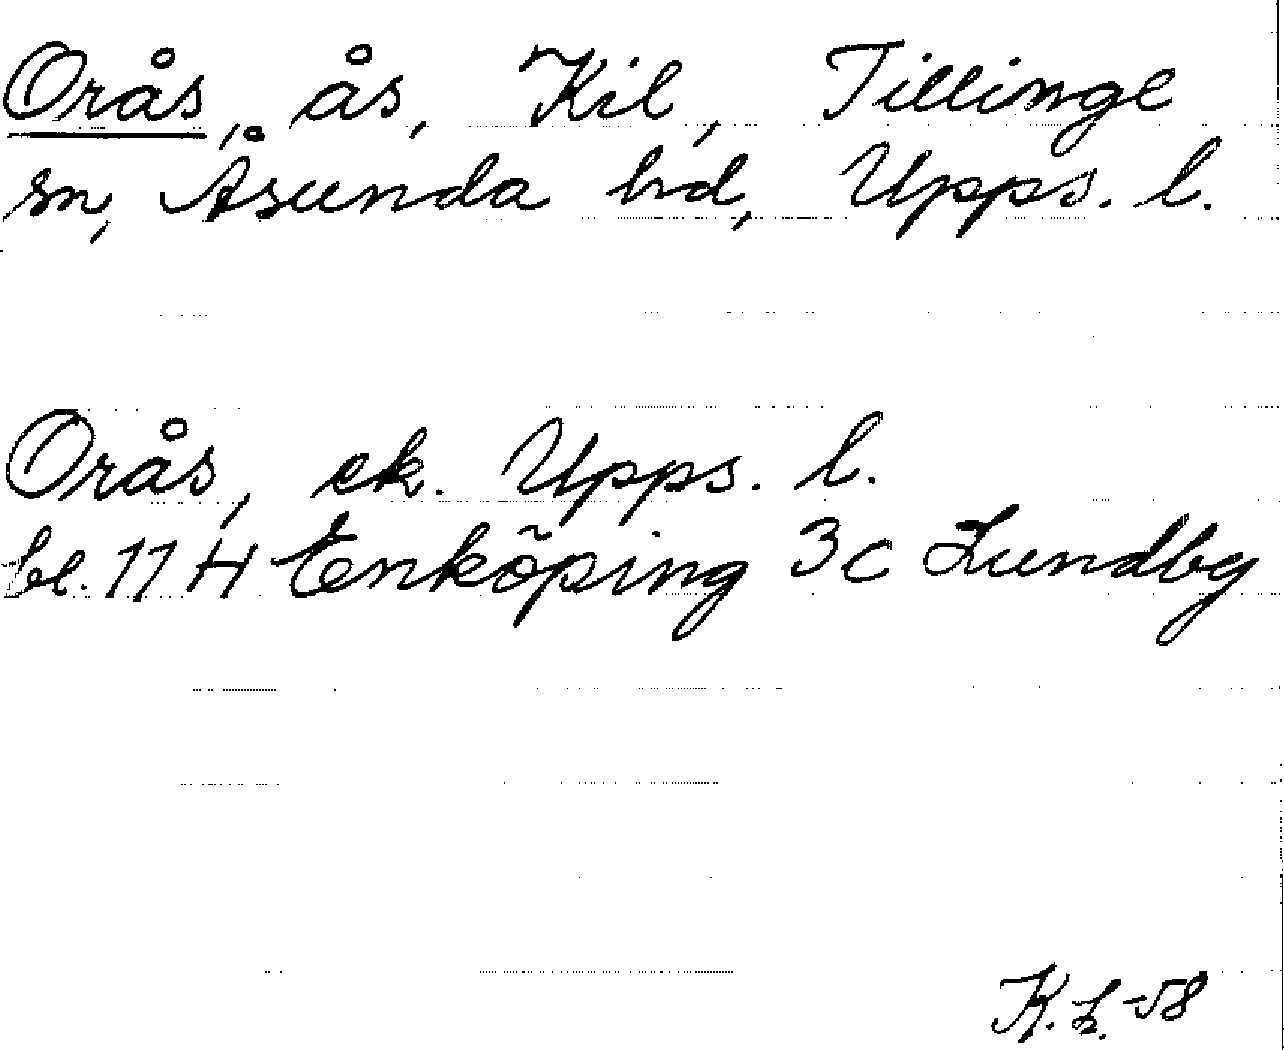 Orås, ås, Kil, Tillinge
sn, Åsunda hd, Upps. l.
Orås, ek. Upps. l.
bl. 11 H Enköping 3c Lundby
K. L. -58